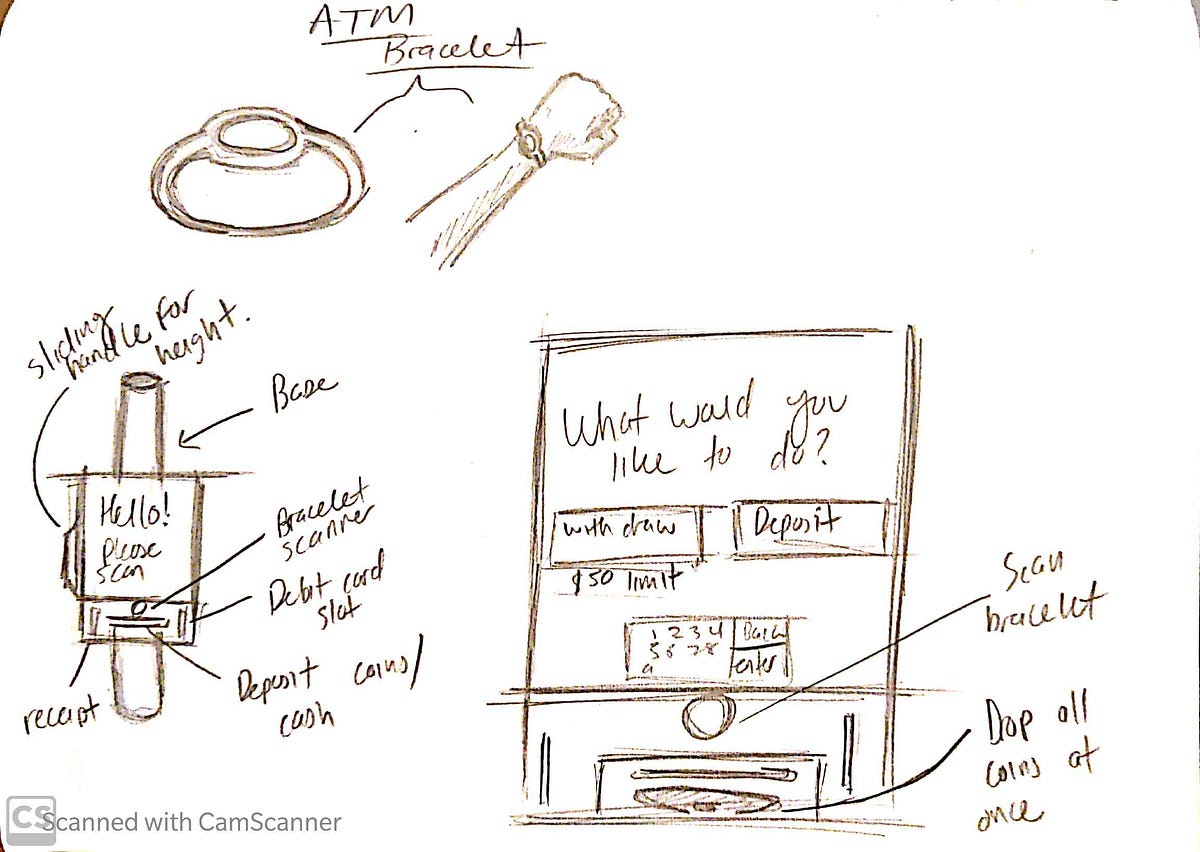 ATM
Bracelet
sliding
handle for
height.
Base
Hello!
please
scan
Bracelet
scanner
Debit card
slot
Deposit coins/
cash
receipt
What would you
like to do?
withdraw
Deposit
$50 limit
1 2 3 4
5 6 7 8
9
Back
enter
Scan
bracelet
Drop all
coins at
once
CS
Scanned with CamScanner